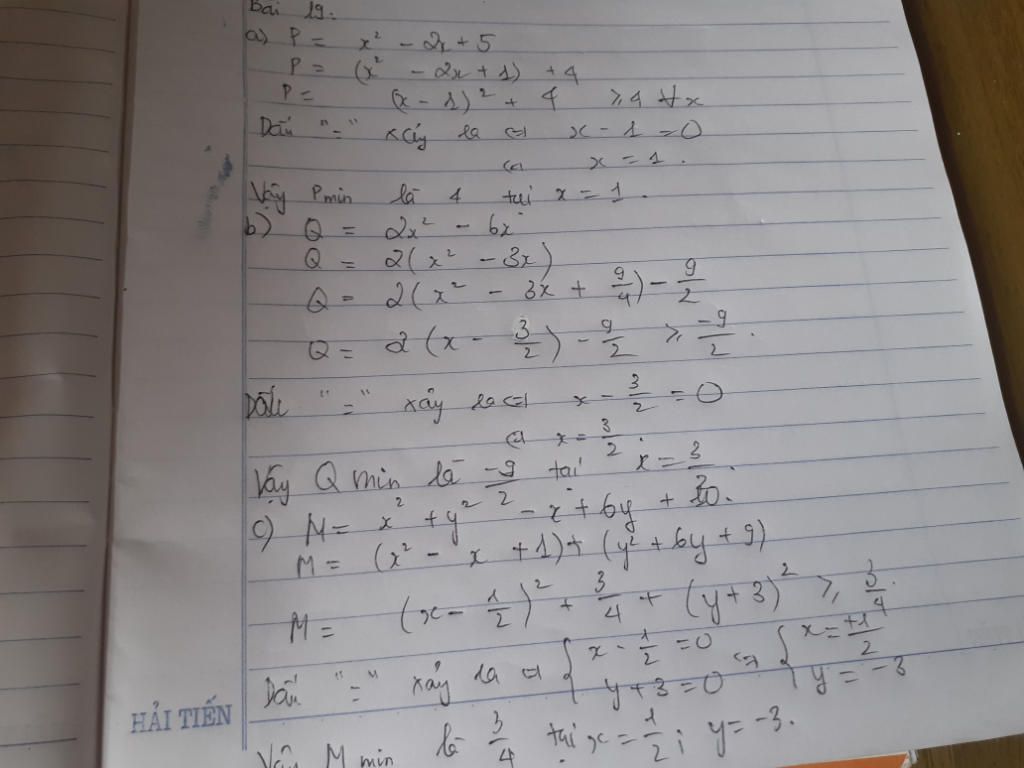 Bài 19:
a) P = x² - 2x + 5
P = (x² - 2x + 1) + 4
P = (x - 1)² + 4 ≥ 4 ∀x
Dấu "=" xảy ra ⇔ x - 1 = 0
⇔ x = 1.
Vậy Pmin là 4 tại x = 1.
b) Q = 2x² - 6x
Q = 2(x² - 3x)
Q = 2(x² - 3x + 9/4) - 9/2
Q = 2(x - 3/2) - 9/2 ≥ -9/2.
Dấu "=" xảy ra ⇔ x - 3/2 = 0
⇔ x = 3/2.
Vậy Q min là -9/2 tại x = 3/2.
c) M = x² + y² - x + 6y + 10.
M = (x² - x + 1) + (y² + 6y + 9)
M = (x - 1/2)² + 3/4 + (y + 3)² ≥ 3/4.
Dấu "=" xảy ra ⇔ { x - 1/2 = 0 ; y + 3 = 0 ⇔ { x = +1/2 ; y = -3
HẢI TIẾN
Vậy M min là 3/4 tại x = 1/2; y = -3.